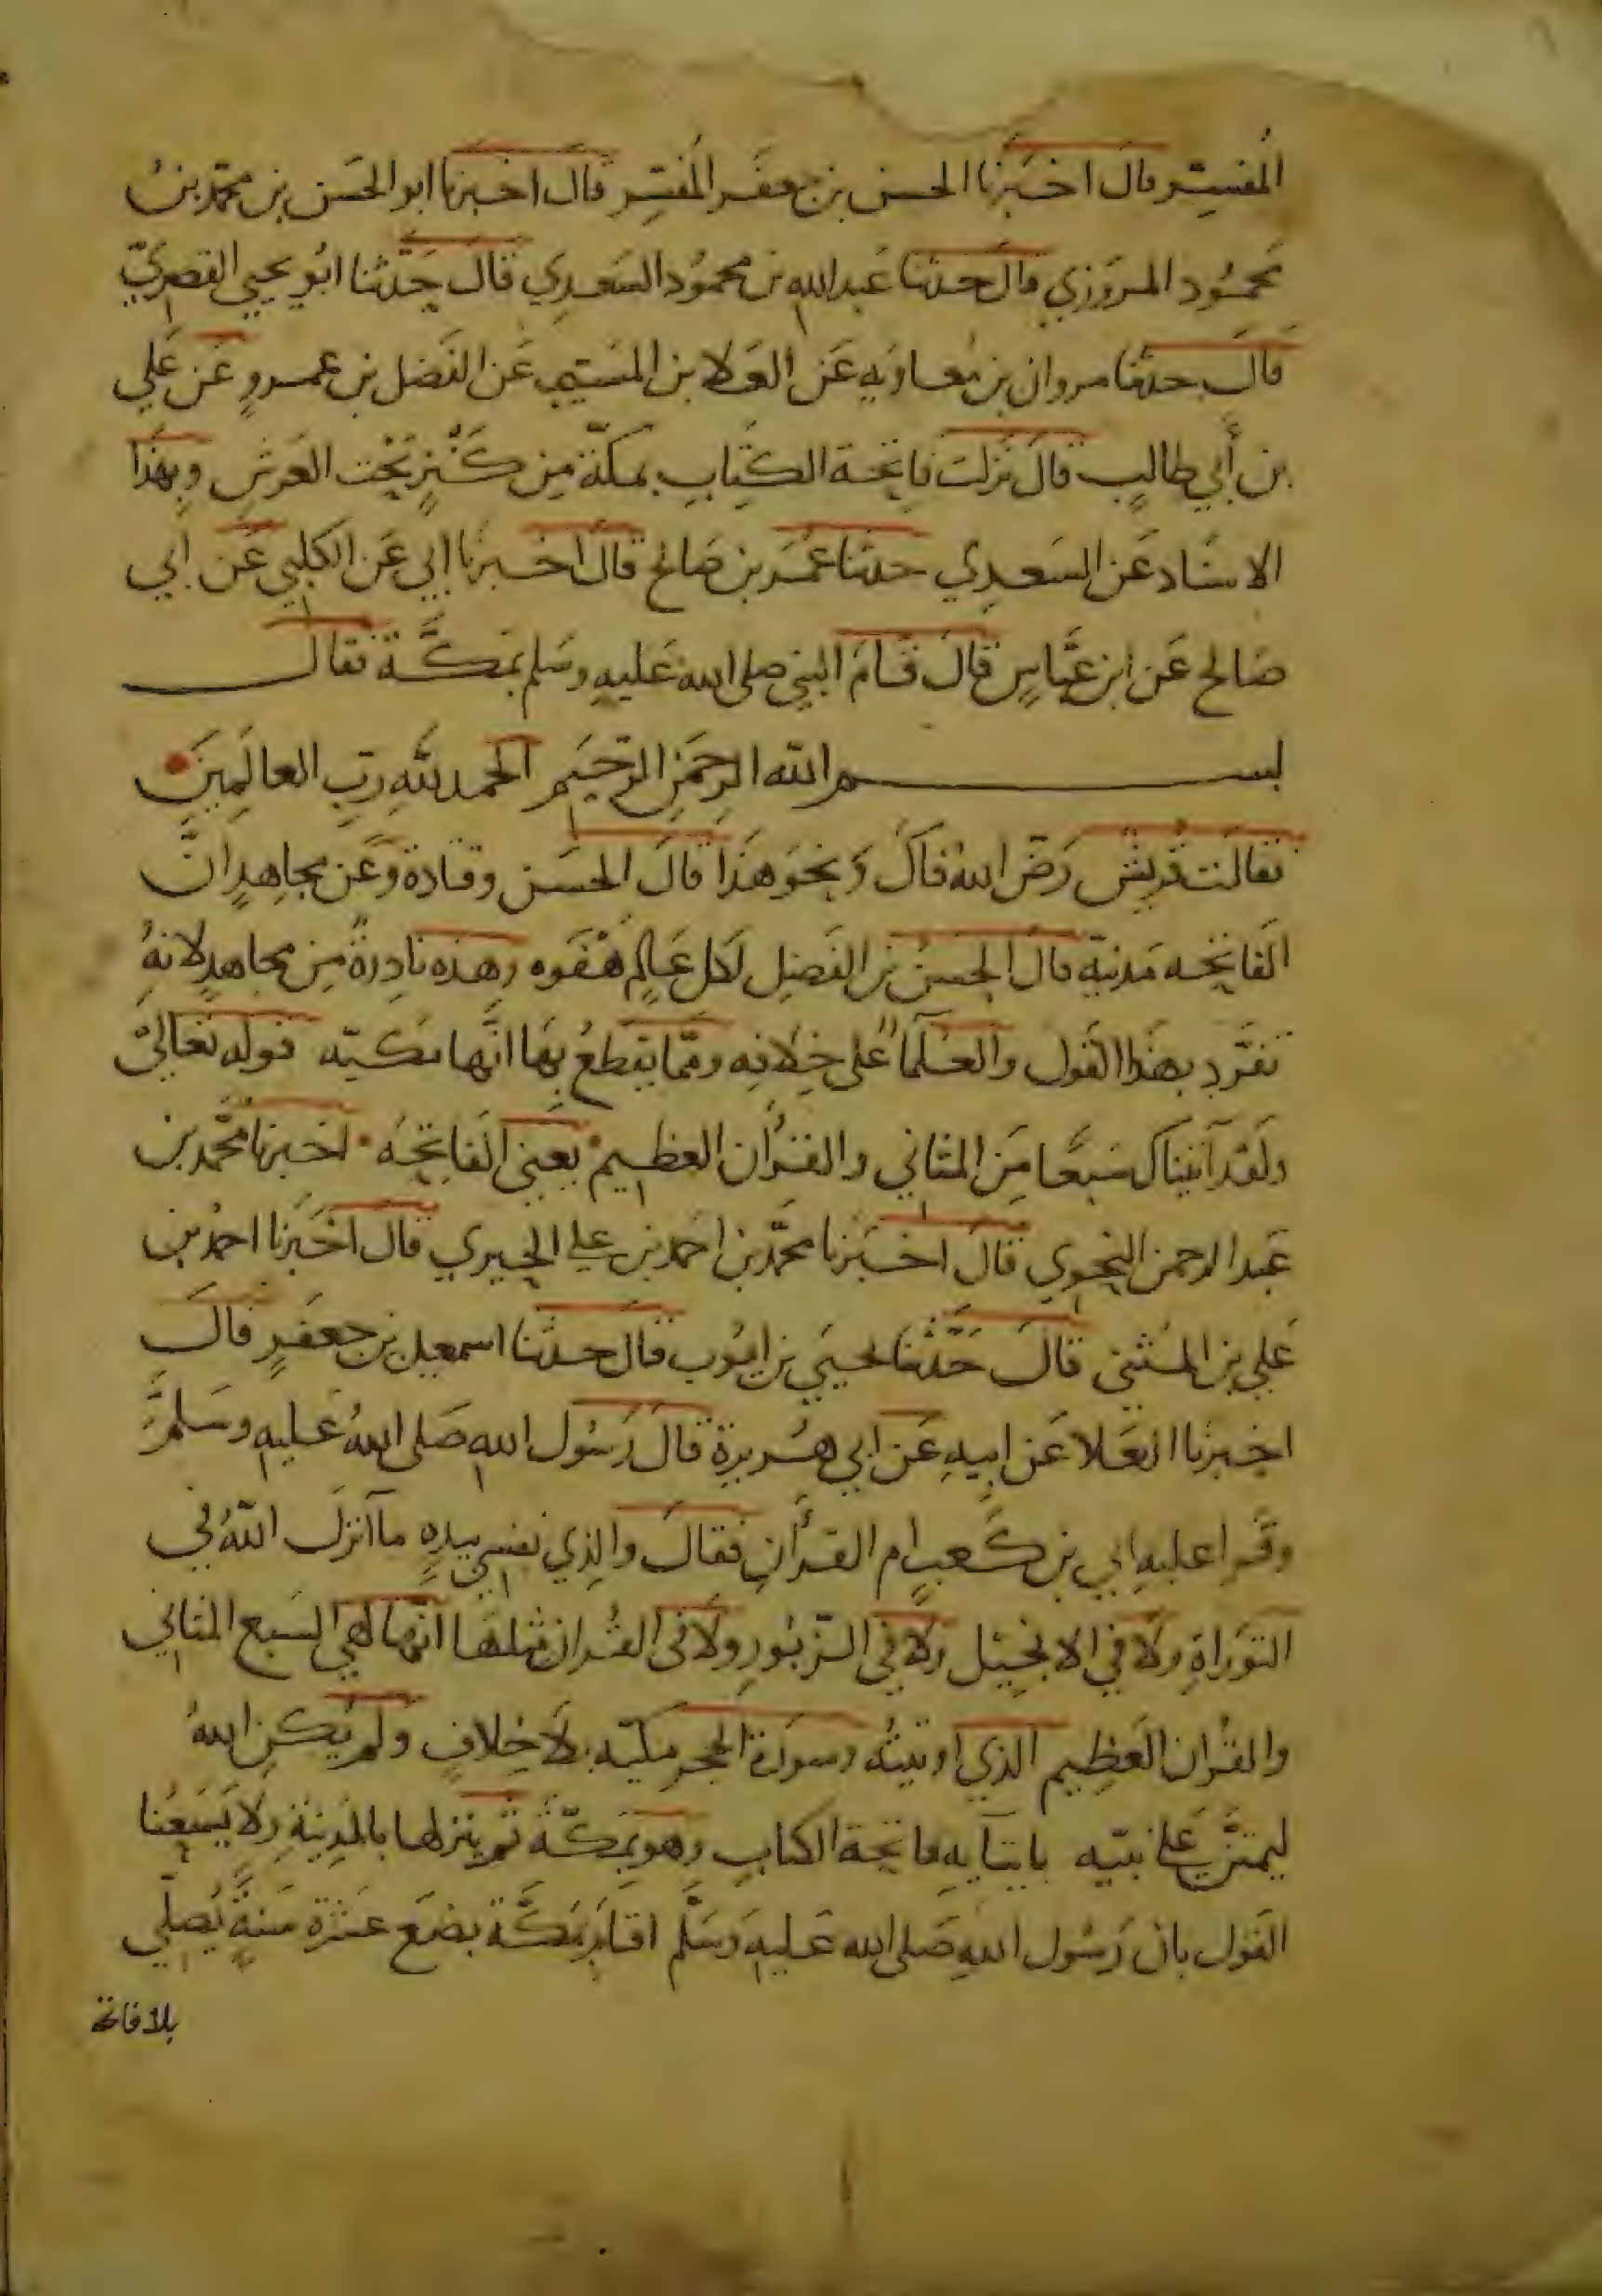 المفسّر قال اخبَرنا الحسن بن جعفَر المُفسّر قال اخبرنا ابو الحَسَن بن محمّد بنُ
مَحمُود المروَزي قال حدثنا عَبد الله بن محمُود السَعدِي قالَ حَدَّثنا ابُو يحيى القصريّ
قالَ حدثنا مروان بن مُعاويه عَن العَلا بن المسَيّب عَن الفَضل بن عمروٍ عَن عَلي
بن أَبي طالبٍ قالَ نَزلت فاتحة الكِتابِ بمكّة مِن كَنْزٍ تَحْت العَرشِ وبهَذا
الاسنَاد عَن السَعدِي حدثنا عُمَر بن صَالح قالَ اخبرَنا ابي عَن الكلبي عَن ابي
صَالح عَن ابن عَبّاسٍ قالَ قامَ النبي صلى الله عَليهِ وسَلم بمَكَّة فقال
بسم الله الرحمَنِ الرّحيَم الحمد للَّهِ ربّ العالَمِينَ
فقالَت قُريش رَضّ الله فاكَ وَنحوَ هَذا قالَ الحسَن وقتادة وَعَن مجاهِدٍ انّ
الفَاتحه مَدنيّه قالَ الحسنُ بن الفَضِل لكل عَالمٍ هَفْوَه وهذه نادِرةٌ مِن مجاهدٍ لانهُ
تفَرّد بهذا القَول والعُلَمآءُ على خِلافِه وممّا يقطعُ بهَا انَّها مكيّه قوله تعَالىْ
ولقد آتيناك سَبعًا مِنَ المثَاني والقرُان العظيم يعَني الفَاتِحَه اخبرنا محَّمد بن
عَبد الرحمن النَحوي قالَ اخبَرنا محمّد بن احمد بن علي الحِيري قال اخبَرنا احمدُ بن
عَلي بن المثنى قالَ حَدَّثنَا يحيَى بن ايوُب قالَ حدثنا اسمعيل بن جعفَرٍ قالَ
اخبرنا العَلا عَن ابيهِ عَن ابي هُريرة قالَ رَسُول اللهِ صَلى اللهُ عَليهِ وسَلمَّ
وقَرا عليهِ ابي بن كَعبٍ ام القرأَنِ فقالَ والذِي نفسي بيدِهِ ما آنزلَ اللَّهُ في
التورَاةِ ولَا في الانجيل ولا في الزّبُورِ ولَا فى القُران مثلهَا انّهَا لَهي السَبع المثاني
والقُران العَظِيم الذي اوتيتُه وسورَة الحجرِ مكيّه بلَا خِلافٍ ولم يَكن اللهُ
ليمتنَّ على نبيّه بايتآيهِ فاتحة الكتابِ وهو بمَكّة ثم ينزلها بالمدينةِ ولا يَسَعُنا
القَول بان رَسُول اللهِ صَلى الله عَليهِ وَسَلَّم اقامَ بمَكَّة بضعَ عَشرة سَنةً يُصلّي
بلا فاتحة